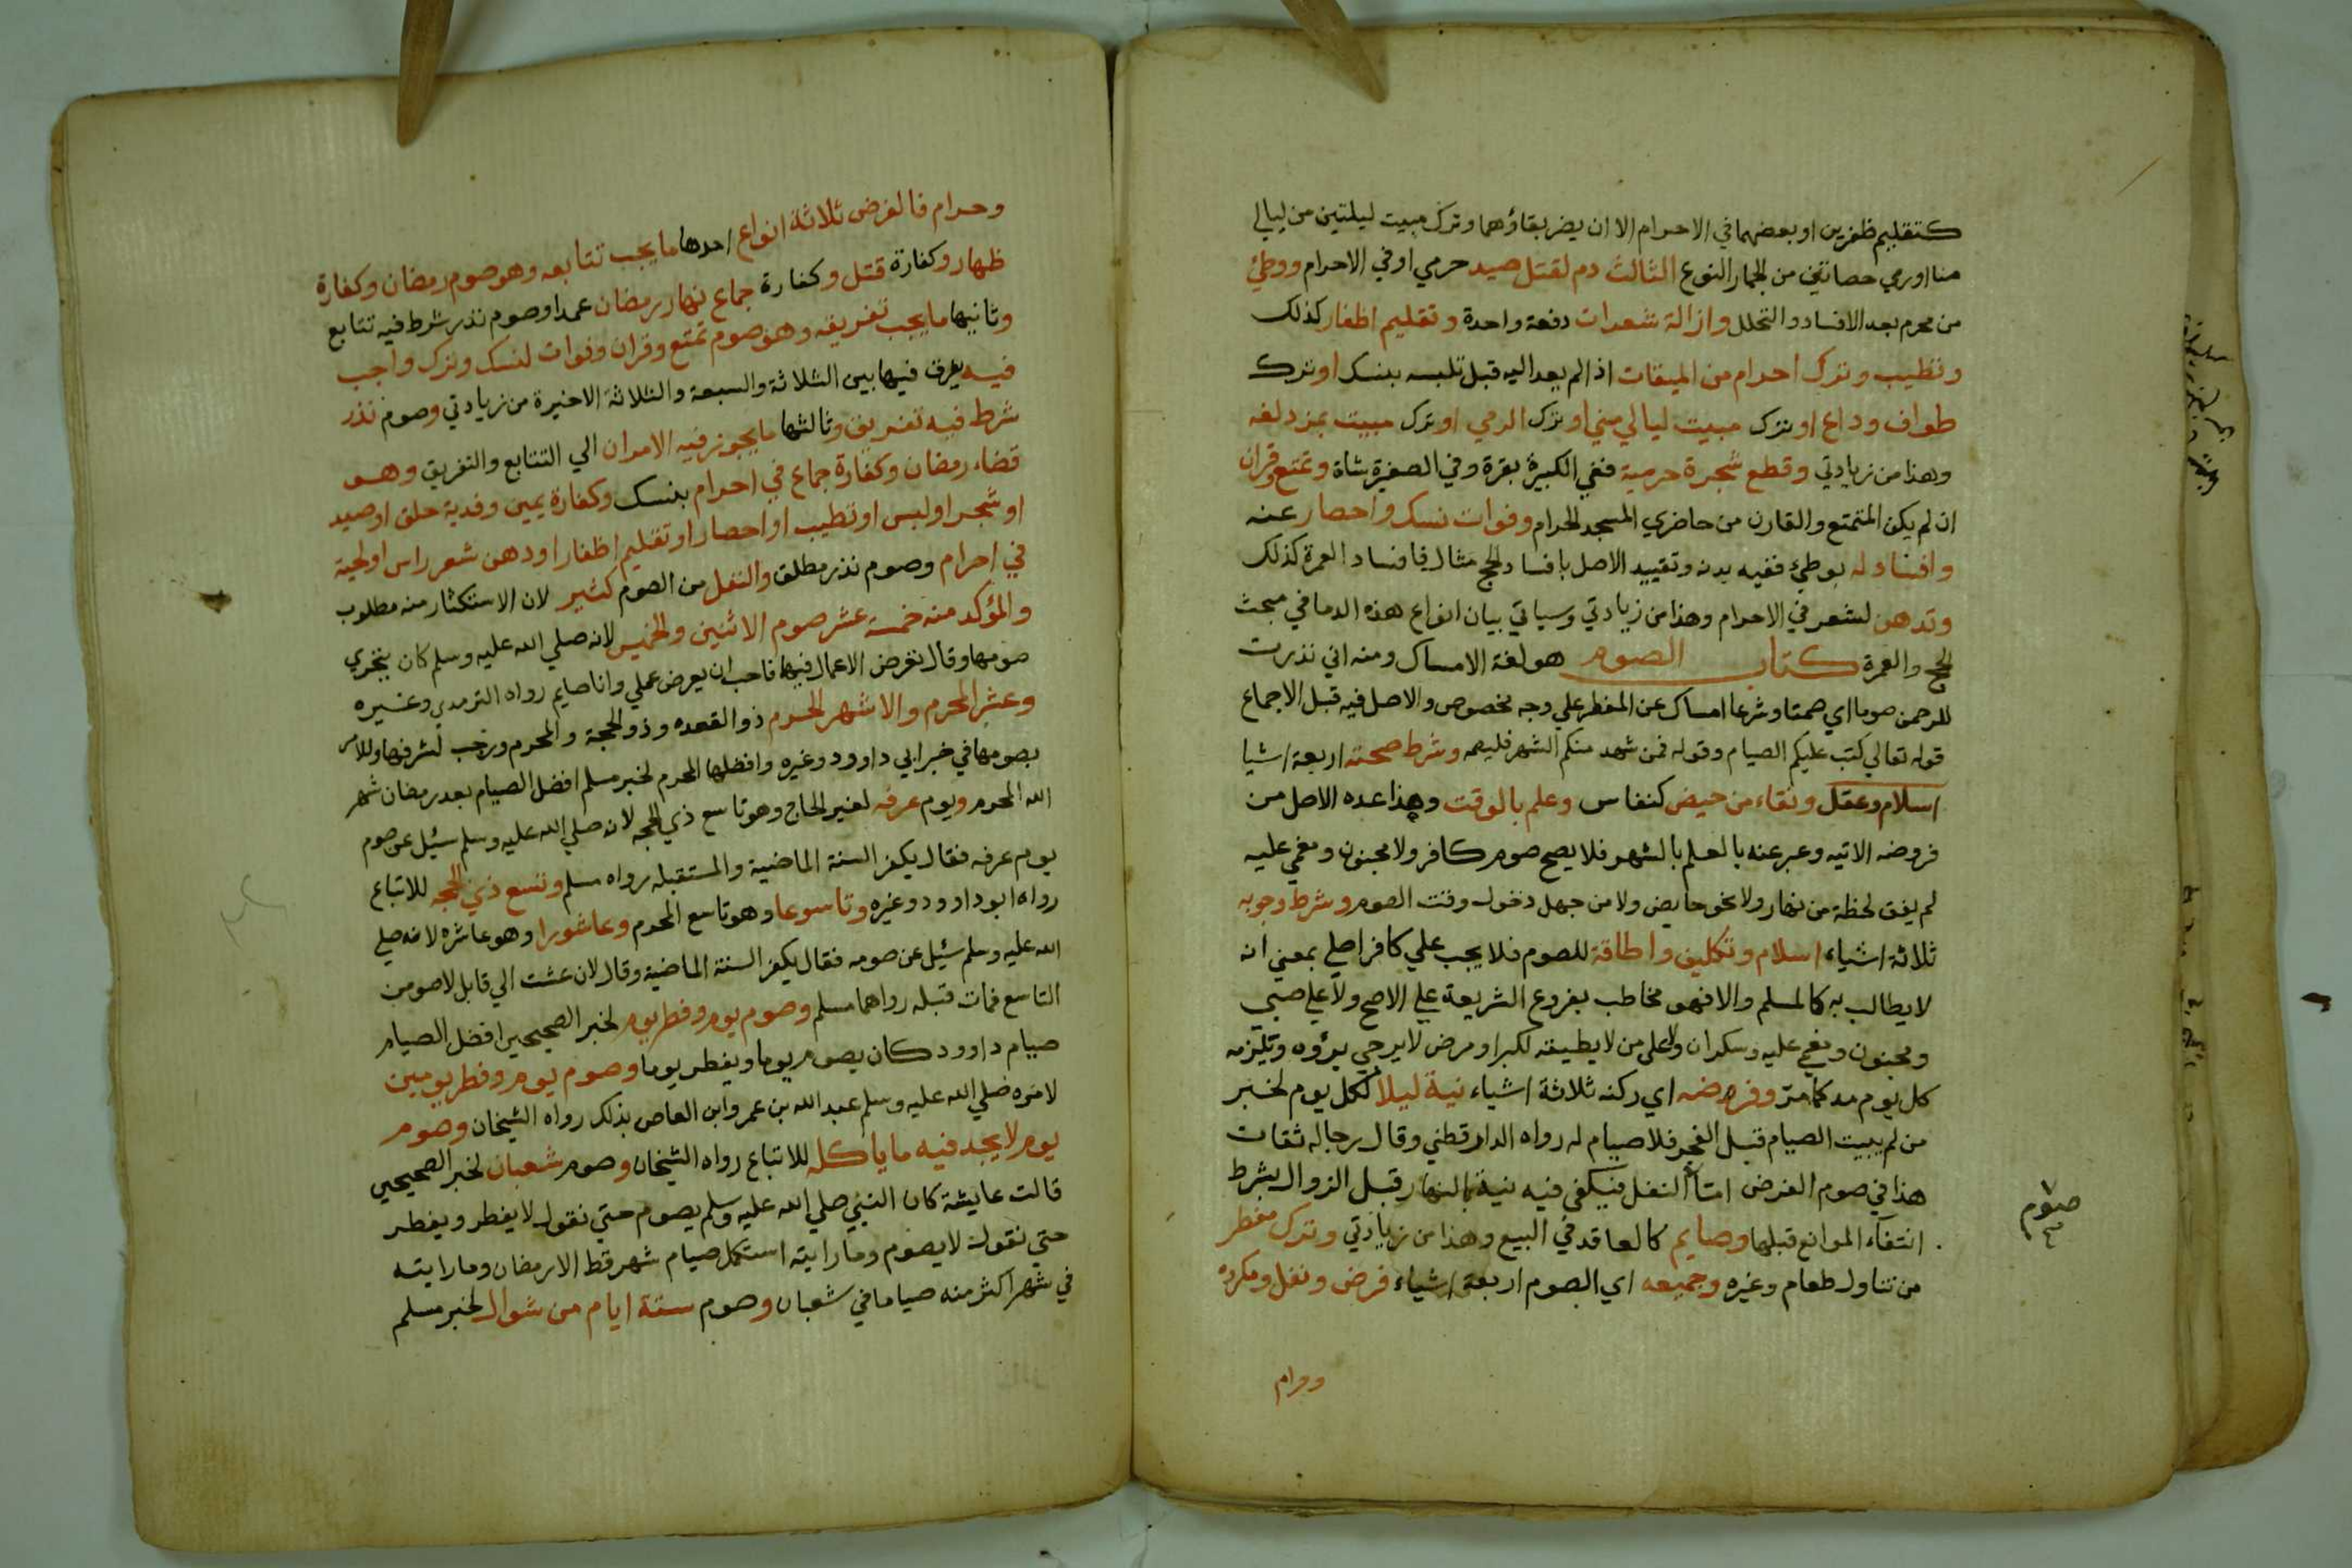 كتقليم ظفرين او بعضهما في الاحرام الا ان يضر بقاؤهما وترك مبيت ليلتين من ليالي
منا او رمي حصاتين من الجمار النوع الثالث دم لقتل صيد حرمي او في الاحرام ووطئ
من محرم بعد الافساد والتحلل وازالة شعرات دفعة واحدة وتقليم اظفار كذلك
وتطيب وترك احرام من الميقات اذا لم يعد اليه قبل تلبسه بنسك او ترك
طواف وداع او ترك مبيت ليالي مني او ترك الرمي او ترك مبيت بمزدلفه
وهذا من زيادتي وقطع شجرة حرمية ففي الكبيرة بقرة وفي الصغيرة شاة وتمتع وقران
ان لم يكن المتمتع والقارن من حاضري المسجد الحرام وفوات نسك واحصار عنه
وافساد له بوطئ ففيه بدنه وتقييد الاصل بافساد الحج مثال فافساد العمرة كذلك
وتدهن لشعر في الاحرام وهذا من زيادتي وسياتي بيان انواع هذه الدما في مبحث
الحج والعمرة كتاب الصوم هو لغة الامساك ومنه اني نذرت
للرحمن صوما اي صمتا وشرعا امساك عن المفطر علي وجه مخصوص والاصل فيه قبل الاجماع
قوله تعالي كتب عليكم الصيام وقوله فمن شهد منكم الشهر فليصمه وشرط صحته اربعة اشيا
اسلام وعقل ونقاء من حيض كنفاس وعلم بالوقت وهذا عده الاصل من
فروضه الاتيه وعبر عنه بالعلم بالشهر فلا يصح صوم كافر ولا مجنون ومغمي عليه
لم يفق لحظة من نهار ولا نحو حايض ولا من جهل دخول وقت الصوم وشرط وجوبه
ثلاثة اشياء اسلام وتكليف واطاقة للصوم فلا يجب علي كافر اصلي بمعني انه
لا يطالب به كالمسلم والا فهو مخاطب بفروع الشريعة علي الاصح ولا علي صبي
ومجنون ومغمي عليه وسكران ولا علي من لا يطيقه لكبر او مرض لا يرجي برؤه وتلزمه
كل يوم مد كما مر وفرضه اي ركنه ثلاثة اشياء نية ليلا لكل يوم لخبر
من لم يبيت الصيام قبل الفجر فلا صيام له رواه الدارقطني وقال رجاله ثقات
هذا في صوم الفرض اما النفل فيكفي فيه نية بالنهار قبل الزوال بشرط
انتفاء الموانع قبلها وصايم كالعاقد في البيع وهذا من زيادتي وترك مفطر
من تناول طعام وغيره وجميعه اي الصوم اربعة اشياء فرض ونفل ومكروه
وحرام
صوم
وحرام فالفرض ثلاثة انواع احدها ما يجب تتابعه وهو صوم رمضان وكفارة
ظهار وكفارة قتل وكفارة جماع نهار رمضان عمدا وصوم نذر شرط فيه تتابع
وثانيها ما يجب تفريقه وهو صوم تمتع وقران وفوات لنسك وترك واجب
فيه يفرق فيها بين الثلاثة والسبعة والثلاثة الاخيرة من زيادتي وصوم نذر
شرط فيه تفريق وثالثها ما يجوز فيه الامران الي التتابع والتفريق وهو
قضاء رمضان وكفارة جماع في احرام بنسك وكفارة يمين وفدية حلق او صيد
او شجر او لبس او تطيب او احصار او تقليم اظفار او دهن شعر راس او لحية
في احرام وصوم نذر مطلق والنفل من الصوم كثير لان الاستكثار منه مطلوب
والمؤكد منه خمسة عشر صوم الاثنين والخميس لانه صلي الله عليه وسلم كان يتحري
صومها وقال تعرض الاعمال فيها فاحب ان يعرض عملي وانا صايم رواه الترمدي وغيره
وعشر المحرم والاشهر الحرم ذو القعده وذو الحجة والمحرم ورجب لشرفها وللامر
بصومها في خبر ابي داوود وغيره وافضلها المحرم لخبر مسلم افضل الصيام بعد رمضان شهر
الله المحرم ويوم عرفه لغير الحاج وهو تاسع ذي الحجه لانه صلي الله عليه وسلم سئل عن صوم
يوم عرفه فقال يكفر السنة الماضية والمستقبله رواه مسلم وتسع ذي الحجه للاتباع
رواه ابو داوود وغيره وتاسوعا وهو تاسع المحرم وعاشورا وهو عاشره لانه صلي
الله عليه وسلم سئل عن صومه فقال يكفر السنة الماضية وقال لان عشت الي قابل لاصومن
التاسع فمات قبله رواهما مسلم وصوم يوم وفطر يوم لخبر الصحيحين افضل الصيام
صيام داوود كان يصوم يوما ويفطر يوما وصوم يوم وفطر يومين
لامره صلي الله عليه وسلم عبد الله بن عمر وابن العاص بذلك رواه الشيخان وصوم
يوم لا يجد فيه ما ياكله للاتباع رواه الشيخان وصوم شعبان لخبر الصحيحين
قالت عايشة كان النبي صلي الله عليه وسلم يصوم حتي نقول لا يفطر ويفطر
حتي نقول لا يصوم وما رايته استكمل صيام شهر قط الا رمضان وما رايته
في شهر اكثر منه صياما في شعبان وصوم ستة ايام من شوال لخبر مسلم